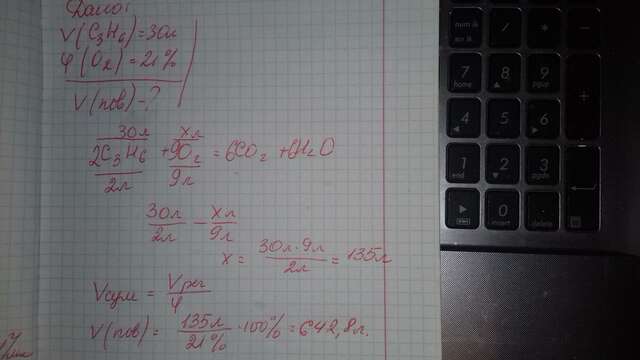 Дано:
V(C₃H₆)=30л
φ(O₂)=21%
V(пов)-?
30л xл
2C₃H₆ + 9O₂ = 6CO₂ + 6H₂O
2л 9л
30л - xл
2л 9л
x = 30л·9л = 135л
2л
Vсум = Vреч
φ
V(пов) = 135л ·100% = 642,8л.
21%
num lk
scr lk
/
*
-
7 home
8
9 pgup
+
4
5
6
1 end
2
3 pgdn
0 insert
. delete